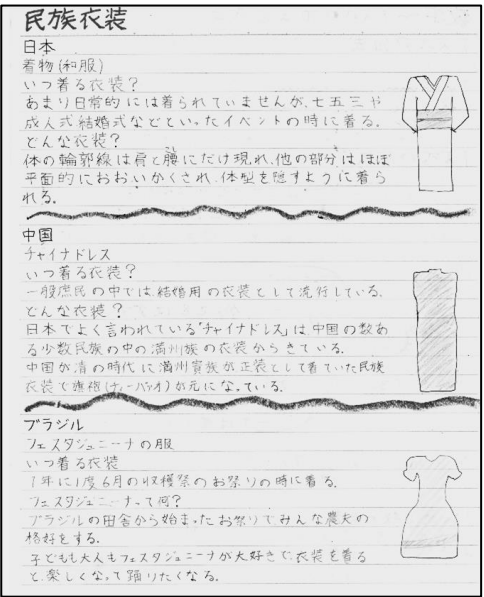 民族衣装
日本
着物(和服)
いつ着る衣装?
あまり日常的には着られていませんが、七五三や
成人式結婚式などといったイベントの時に着る。
どんな衣装?
体の輪郭線は肩と腰にだけ現れ、他の部分はほぼ
平面的におおいかくされ、体型を隠すように着ら
れる。
中国
チャイナドレス
いつ着る衣装?
一般庶民の中では、結婚用の衣装として流行している。
どんな衣装?
日本でよく言われている「チャイナドレス」は中国の数あ
る少数民族の中の満州族の衣装からきている。
中国が清の時代に満州貴族が正装として着ていた民族
衣装で旗袍(チーパオ)が元になっている。
ブラジル
フェスタジュニーナの服
いつ着る衣装
1年に1度6月の収穫祭のお祭りの時に着る。
フェスタジュニーナって何?
ブラジルの田舎から始まったお祭りでみんな農夫の
格好をする。
子どもも大人もフェスタジュニーナが大好きで、衣装を着る
と、楽しくなって踊りたくなる。